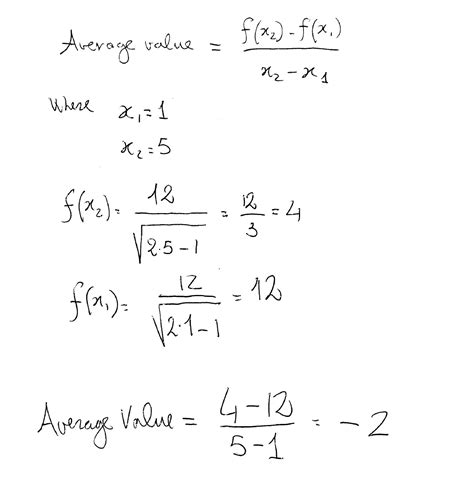 Average value = f(x₂) - f(x₁) / x₂ - x₁
Where x₁ = 1
x₂ = 5
f(x₂) = 12 / √(2·5-1) = 12/3 = 4
f(x₁) = 12 / √(2·1-1) = 12
Average Value = 4-12 / 5-1 = -2